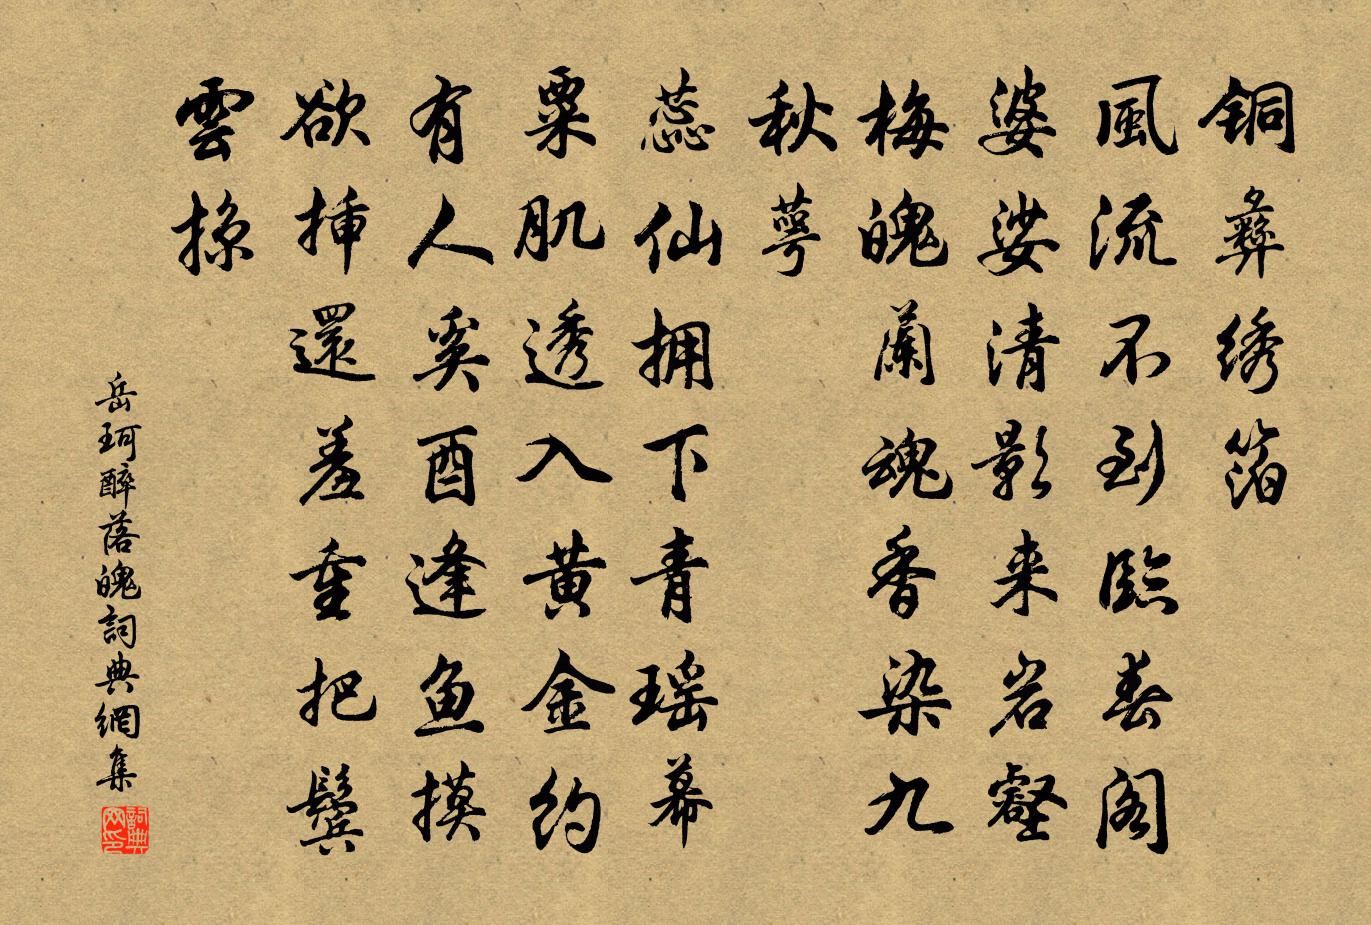 銅彝绣箔
風流不到臨春阁
婆娑清影来岩壑
梅魄蘭魂香染九
秋萼
蕊仙拥下青瑶幕
粟肌透入黄金约
有人奚酉逢鱼摸
欲挿還羞重把鬓
雲掠
岳珂醉落魄詞典網集